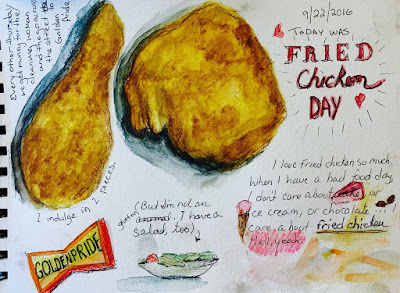 Every other Thursday
we get money for the
cleaning woman
and then go across
the street to
Golden
Pride
9/22/2016
TODAY WAS
FRIED
Chicken
DAY
I indulge in 2 pieces.
I love fried chicken so much.
When I have a bad food day
I don't care about cake, or
ice cream, or chocolate... I
care about fried chicken
Hell, yeah.
(But I'm not an
glutton
. I have a
salad, too)
GOLDEN PRIDE